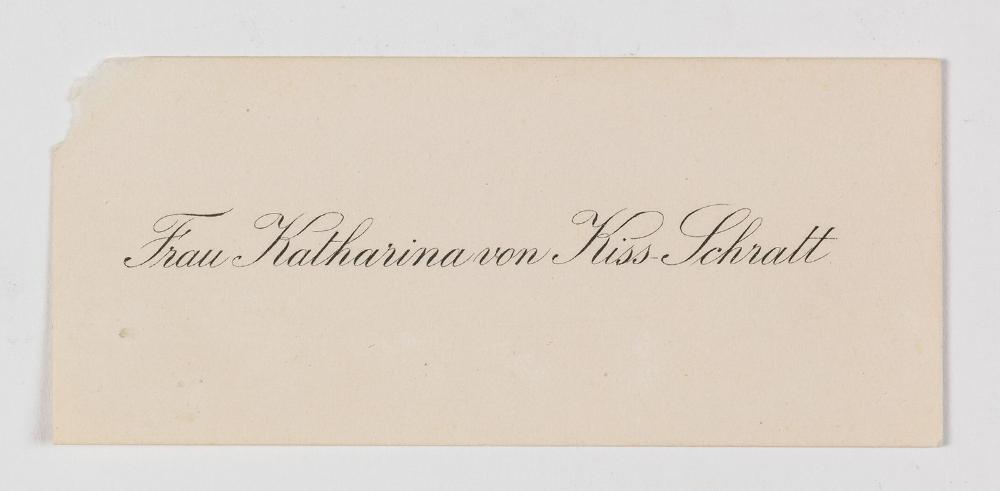 Frau Katharina von Kiss-Schratt